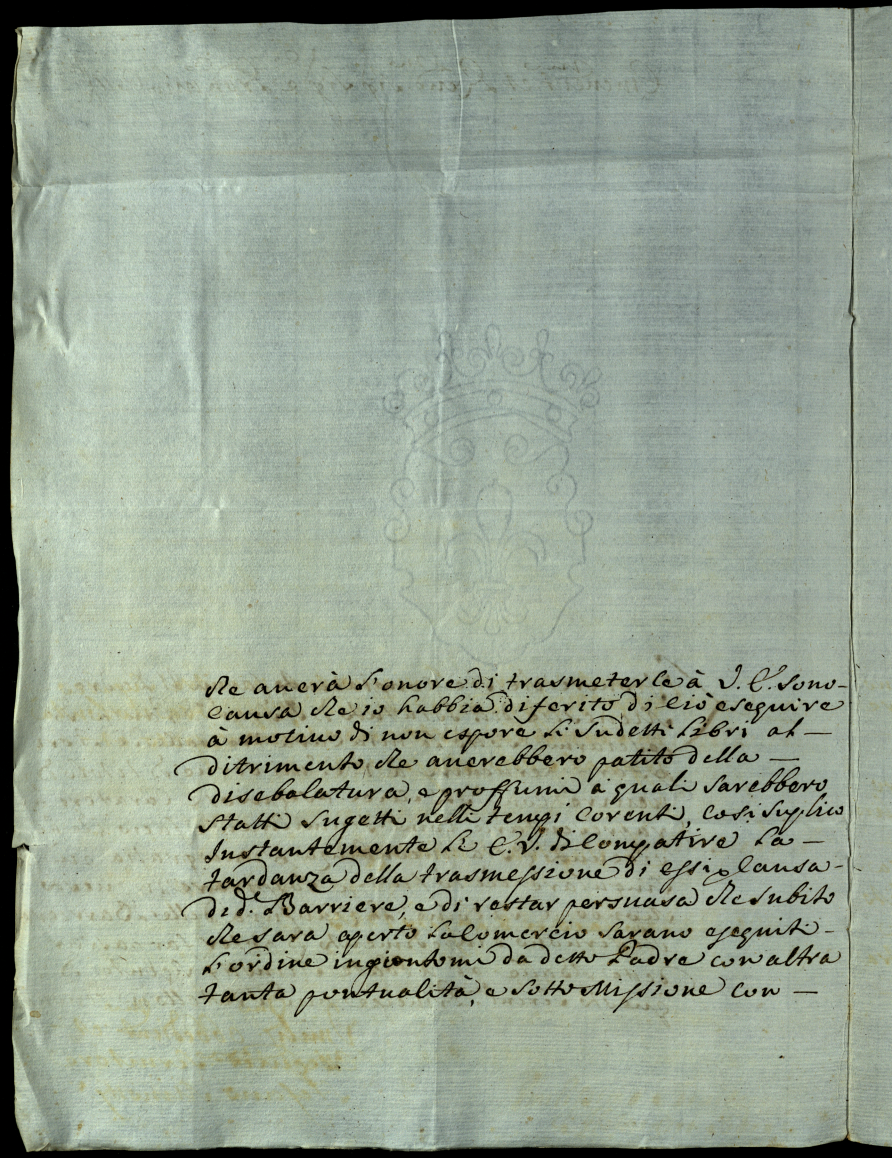 che auerà l'onore di trasmeterle à V. E. sono-
causa che io habbia diferito di ciò eseguire
à motiuo di non espore li sudetti Libri al —
ditrimento che auerebbero patito della —
disebalatura, e proffumi a quali sarebbero
statti sugetti nelli tempi corenti, cosi suplico
Instantemente L'E. V. di compatire La —
tardanza della trasmessione di essi p causa -
di d.e Barriere, e di restar persuasa che subito
che sara aperto La Comercio sarano eseguiti -
L'ordine ingiontomi da detto Padre con altra
tanta pontualità, e sotto Missione con —